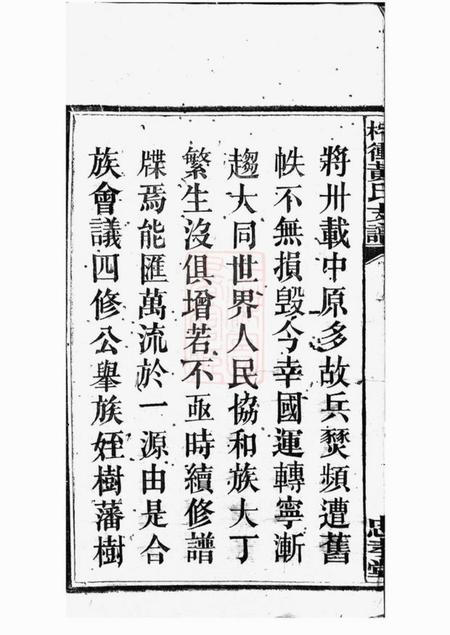 衝黃氏支譜
忠孝堂
將卅載中原多故兵燹頻遭舊
帙不無損毀今幸國運轉寧漸
趨大同世界人民協和族大丁
繁生沒俱增若不亟時續修譜
牒焉能匯萬流於一源由是合
族會議四修公舉族姪樹藩樹